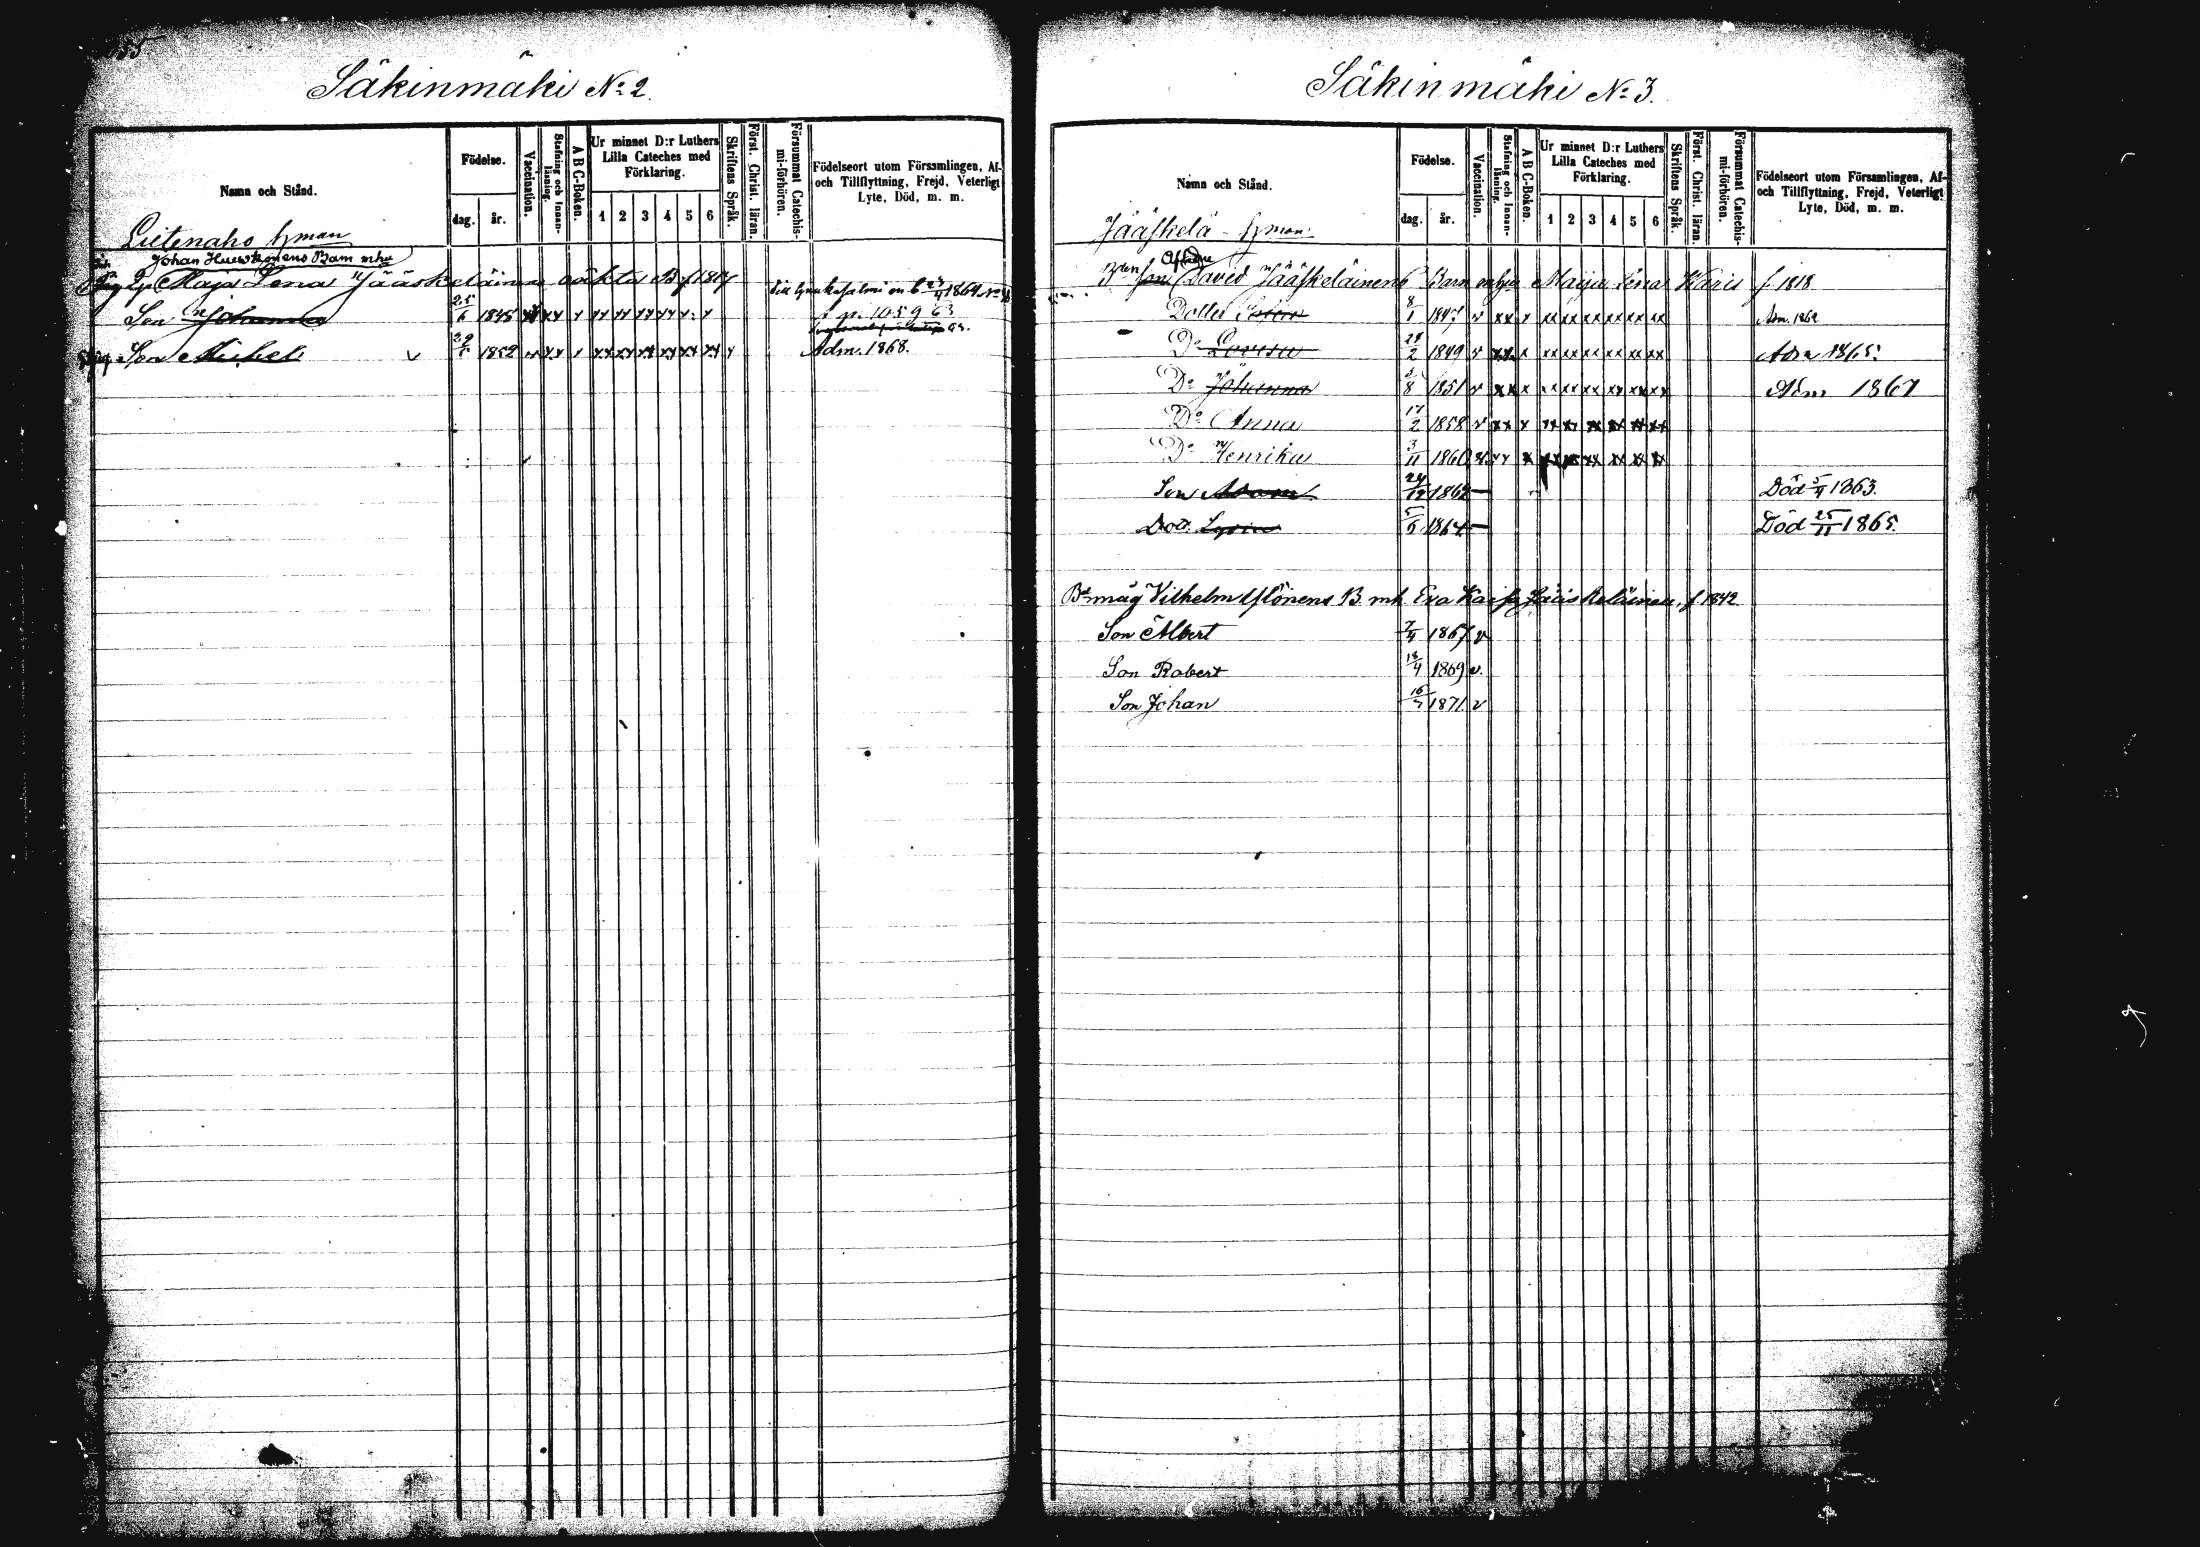 55
Säkinmäki No 2.
Namn och Stånd.
Födelse.
dag.
år.
Vaccination.
Stafning och Innanläsning.
A B C-Boken.
Ur minnet D:r Luthers Lilla Cateches med Förklaring.
1 2 3 4 5 6
Skriftens Språk.
Först. Christ. läran.
Försummat Catechismi-förhören.
Födelseort utom Församlingen, Af- och Tillflyttning, Frejd, Veterligt Lyte, Död, m. m.
Johan Barn mhu
Maja Lena Jääskeläinens oäkta B f 1817
Son Johannes 25/6 1845
Son Michel v 29/ 1852 Adm. 1868.
Säkinmäki No 3.
Namn och Stånd.
Födelse.
dag.
år.
Vaccination.
Stafning och Innanläsning.
A B C-Boken.
Ur minnet D:r Luthers Lilla Cateches med Förklaring.
1 2 3 4 5 6
Skriftens Språk.
Först. Christ. läran.
Försummat Catechismi-förhören.
Födelseort utom Församlingen, Af- och Tillflyttning, Frejd, Veterligt Lyte, Död, m. m.
Jääskelä
David Jääskeläinens Barn mhu Maija Lena Waris f. 1818
Dotter 8/1 1847 v xx x xx xx xx xx xx xx Adm. 1862
Do Lovisa 28/2 1849 v xx x xx xx xx xx xx xx Adm 1865.
Do Johanna 5/8 1851 v xx x xx xx xx xx xx xx Adm 1867
Do Anna 17/2 1858 v xx x xx xx xx xx xx xx
Do Henrika 3/11 1860 v xx x xx xx xx xx xx xx
Son Adam 24/12 1862 — Död 5/4 1863.
Dott. 5/9 1864 — Död 25/11 1865.
måg Vilhelm Ylönens B mh. Eva Kaisa Jääskeläinen, f. 1842
Son Albert 7/4 1867 v
Son Robert 18/4 1869 v.
Son Johan 16/7 1871. v